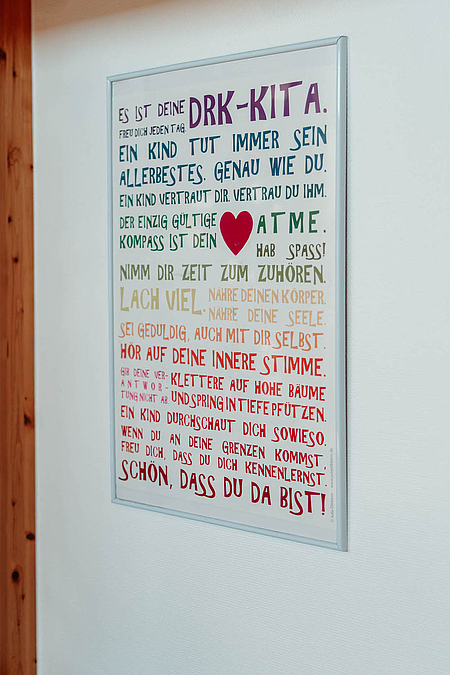 ES IST DEINE DRK-KITA.
FREU DICH JEDEN TAG.
EIN KIND TUT IMMER SEIN
ALLERBESTES. GENAU WIE DU.
EIN KIND VERTRAUT DIR. VERTRAU DU IHM.
DER EINZIG GÜLTIGE
KOMPASS IST DEIN
ATME.
HAB SPASS!
NIMM DIR ZEIT ZUM ZUHÖREN.
LACH VIEL.
NÄHRE DEINEN KÖRPER.
NÄHRE DEINE SEELE.
SEI GEDULDIG, AUCH MIT DIR SELBST.
HÖR AUF DEINE INNERE STIMME.
GIB DEINE VER-
ANTWOR-
TUNG NICHT AB.
KLETTERE AUF HOHE BÄUME
UND SPRING IN TIEFE PFÜTZEN.
EIN KIND DURCHSCHAUT DICH SOWIESO.
WENN DU AN DEINE GRENZEN KOMMST,
FREU DICH, DASS DU DICH KENNENLERNST.
SCHÖN, DASS DU DA BIST!